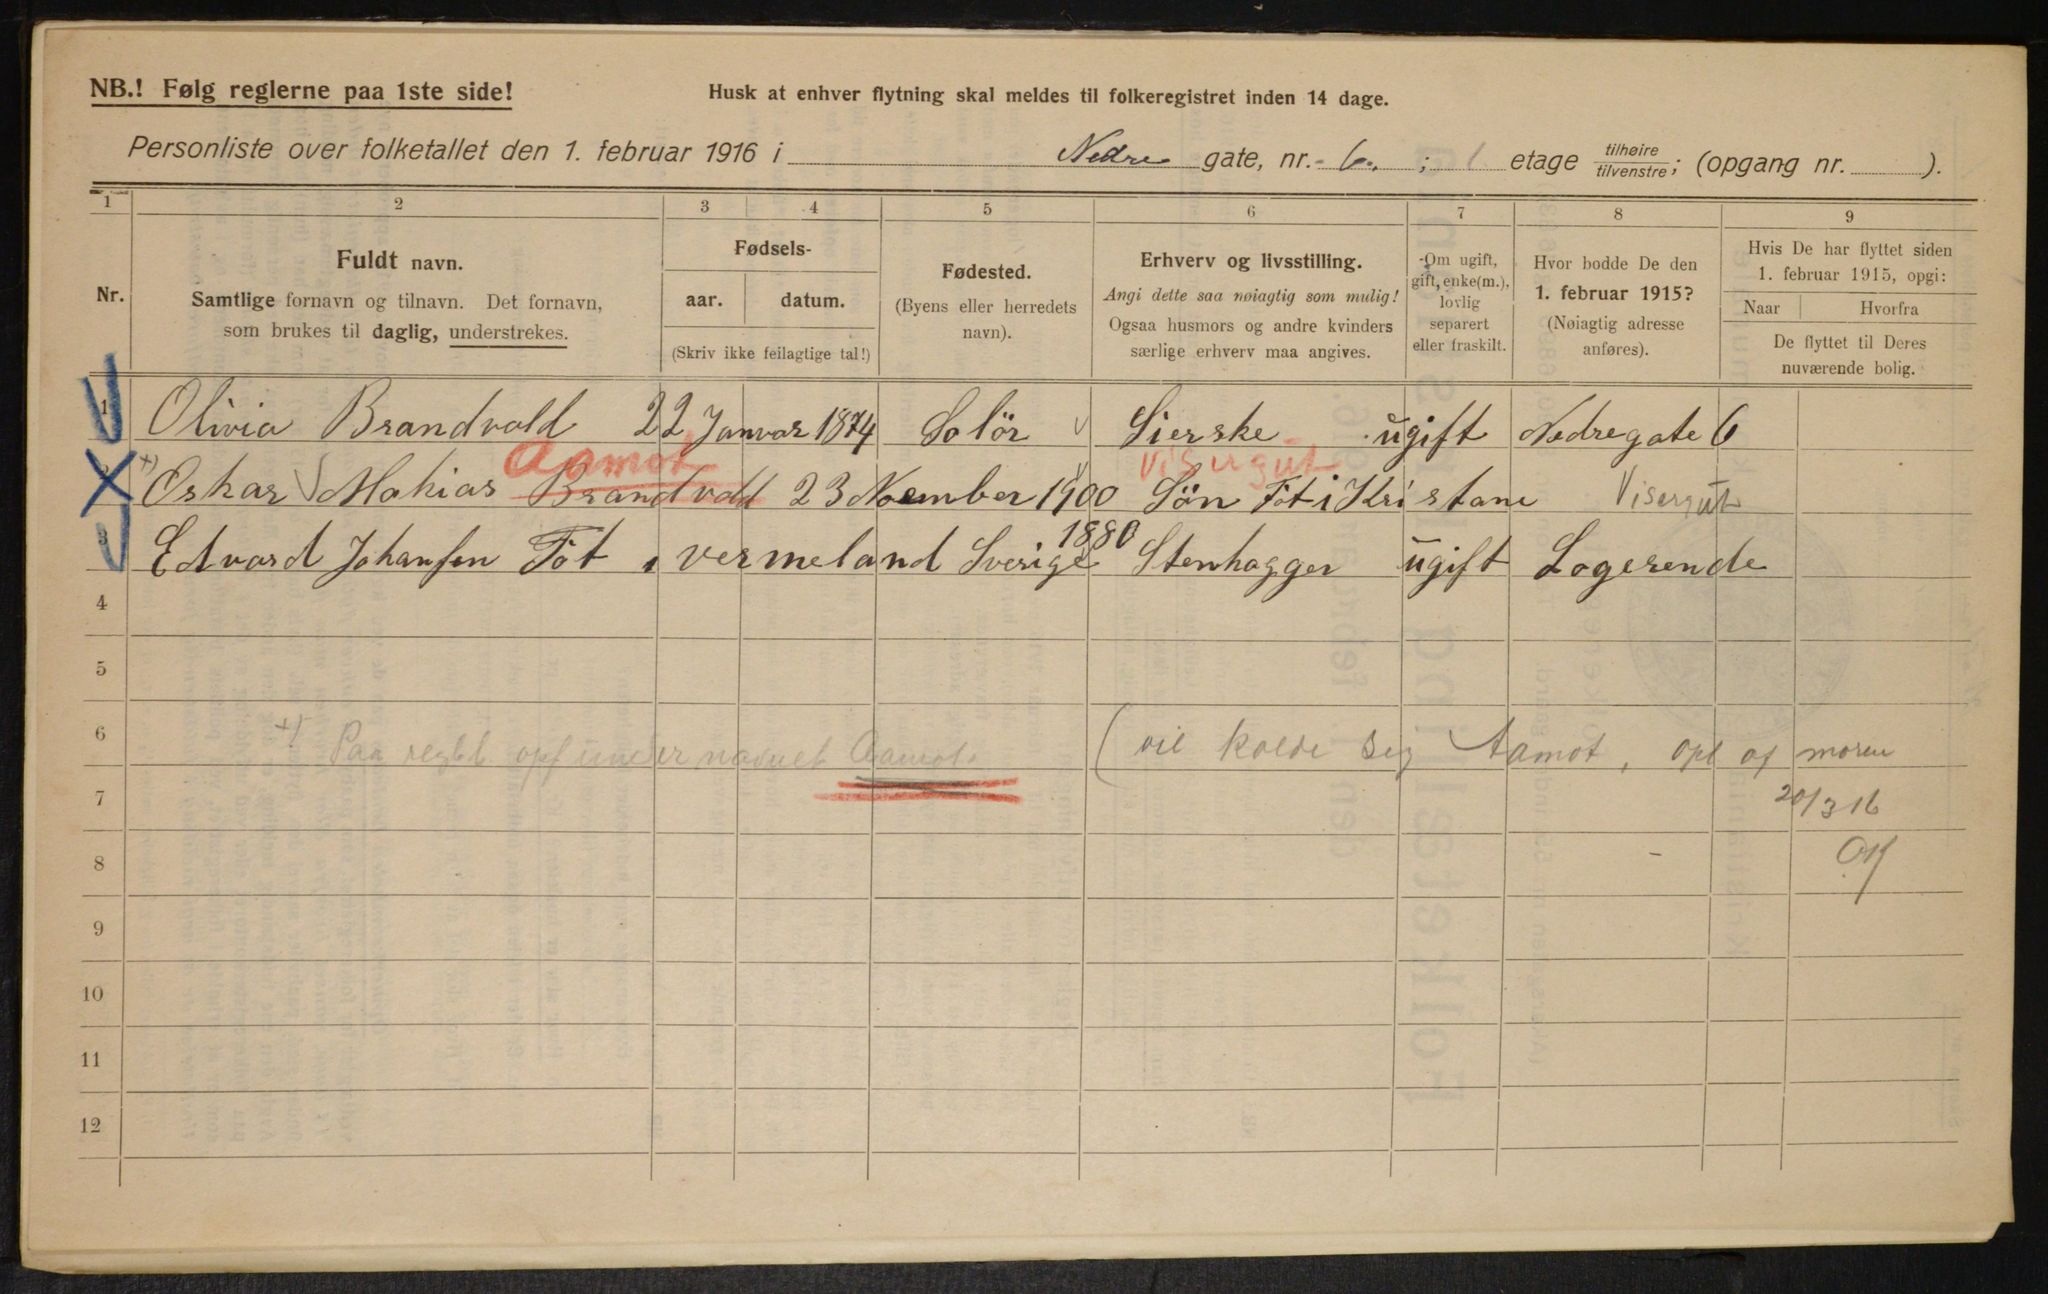 NB.! Følg reglerne paa 1ste side!
Husk at enhver flytning skal meldes til folkeregistret inden 14 dage.
Personliste over folketallet den 1. februar 1916 i Nedre gate, nr. 6. ; 1 etage tilhøire/tilvenstre; (opgang nr. ).
1 2 3 4 5 6 7 8 9
Nr.
Fuldt navn.
Samtlige fornavn og tilnavn. Det fornavn,
som brukes til daglig, understrekes.
Fødsels-
aar. datum.
(Skriv ikke feilagtige tal!)
Fødested.
(Byens eller herredets
navn).
Erhverv og livsstilling.
Angi dette saa nøiagtig som mulig!
Ogsaa husmors og andre kvinders
særlige erhverv maa angives.
Om ugift,
gift, enke(m.),
lovlig
separert
eller fraskilt.
Hvor bodde De den
1. februar 1915?
(Nøiagtig adresse
anføres).
Hvis De har flyttet siden
1. februar 1915, opgi:
Naar Hvorfra
De flyttet til Deres
nuværende bolig.
1 Olivia Brandvold 22 Janvar 1874 Solör Sierske ugift Nedregate 6
Aamot Visergut
2 +) Oskar Mathias Brandvold 23 November 1900 Sön Föt i Kristane Visergut
1880
3 Edvard Johansen Föt vermeland Sverige Stenhagger ugift Logerende
4
5
6 +) Paa regbl. opf under navnet Aamot. (vil kalde seg Aamot, opl af moren
7 20/3 16
8
9
10
11
12